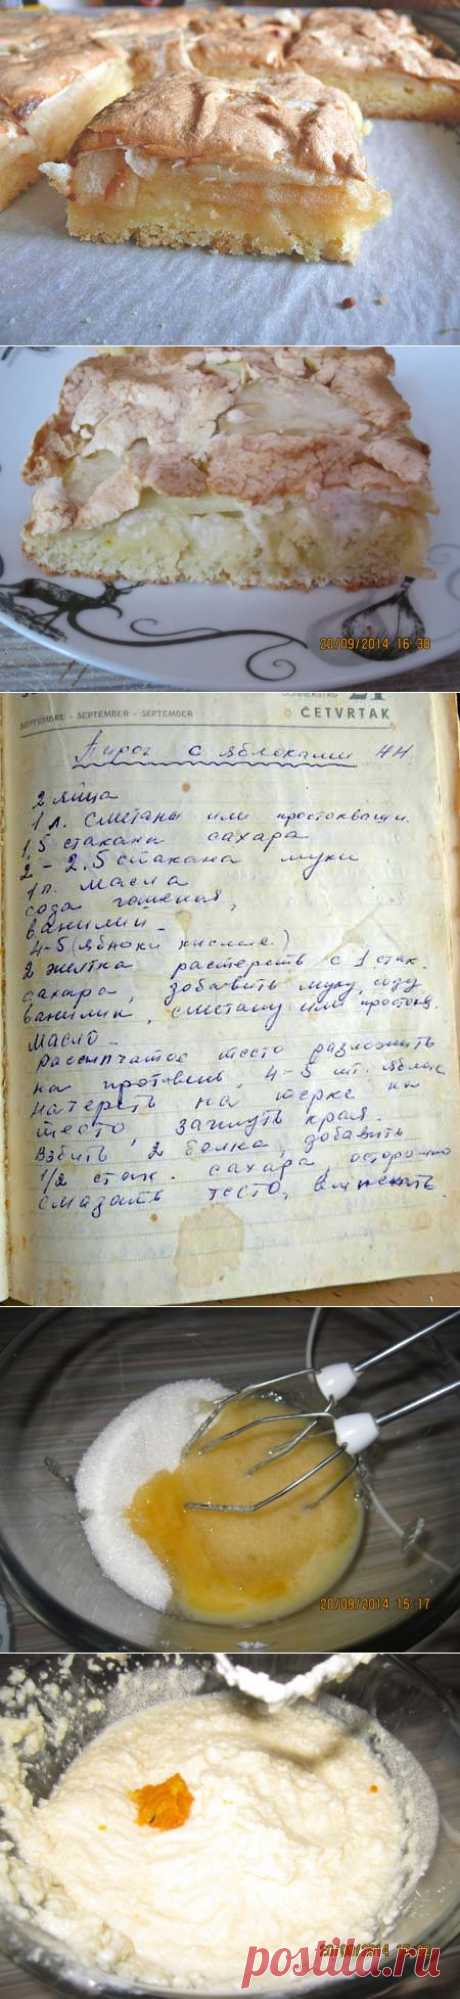 20/09/2014 16:38
SEPTEMBRE - SEPTEMBER - SEPTEMBER
21
ČETVRTAK
Пирог с яблоками НН
2 яйца
1 л. сметаны или простокваши.
1,5 стакана сахара
2 - 2.5 стакана муки
1 п. масла
сода гашеная,
ванилин -
4-5 (яблоки кислые.)
2 желтка растереть с 1 стак.
сахара, добавить муку, соду
ванилин, сметану или простокв.
масло -
Рассыпчатое тесто разложить
на противень, 4-5 шт. яблок
натереть на терке на
тесто, загнуть края.
Взбить 2 белка, добавить
1/2 стак. сахара, осторожно
смазать тесто,
20/09/2014 15:17
postila.ru